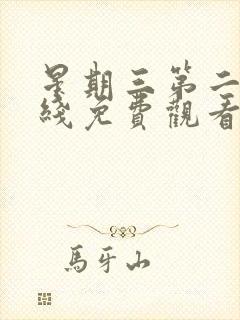 星期三第二
綫免費觀看
馬牙山